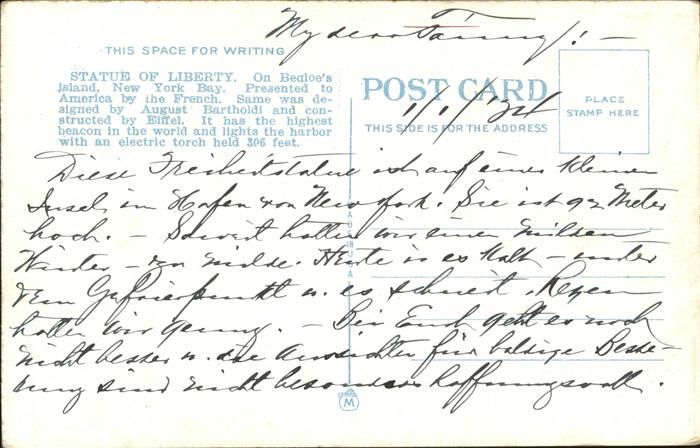 My dear Fanny! -
THIS SPACE FOR WRITING
STATUE OF LIBERTY. On Bedloe's
Island, New York Bay. Presented to
America by the French. Same was de-
signed by August Bartholdi and con-
structed by Eiffel. It has the highest
beacon in the world and lights the harbor
with an electric torch held 306 feet.
POST CARD
1/1/34
THIS SIDE IS FOR THE ADDRESS
PLACE
STAMP HERE
Diese Freiheitstatue ist auf einer kleinen
Insel im Hafen von New York. Sie ist 92 Meter
hoch. - Soweit hatten wir einen milden
Winter - zu milde. Heute is es kalt - unter
dem Gefrierpunkt u. es schneit. Regen
hatten wir genug. - Bei Euch geht es noch
nicht besser u. die Aussichten für baldige Besse-
rung sind nicht besonders hoffnungsvoll.
M